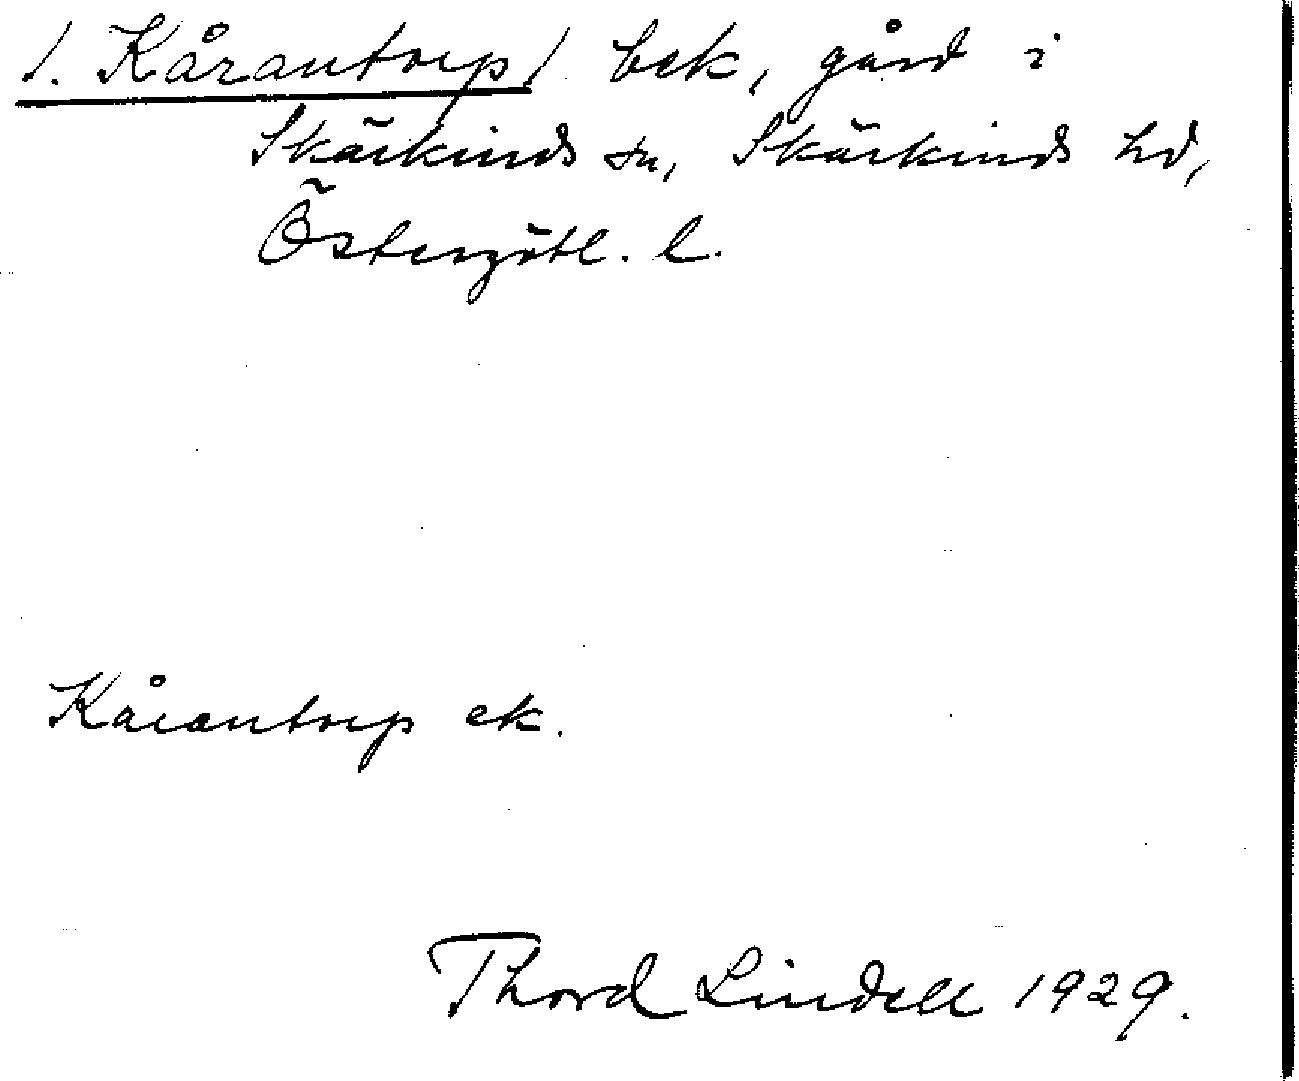 1. Kårantorp! bek, gård i
Skärkinds sn, Skärkinds hd,
Östergötl. l.
Kårantorp ek.
Thord Lindell 1929.